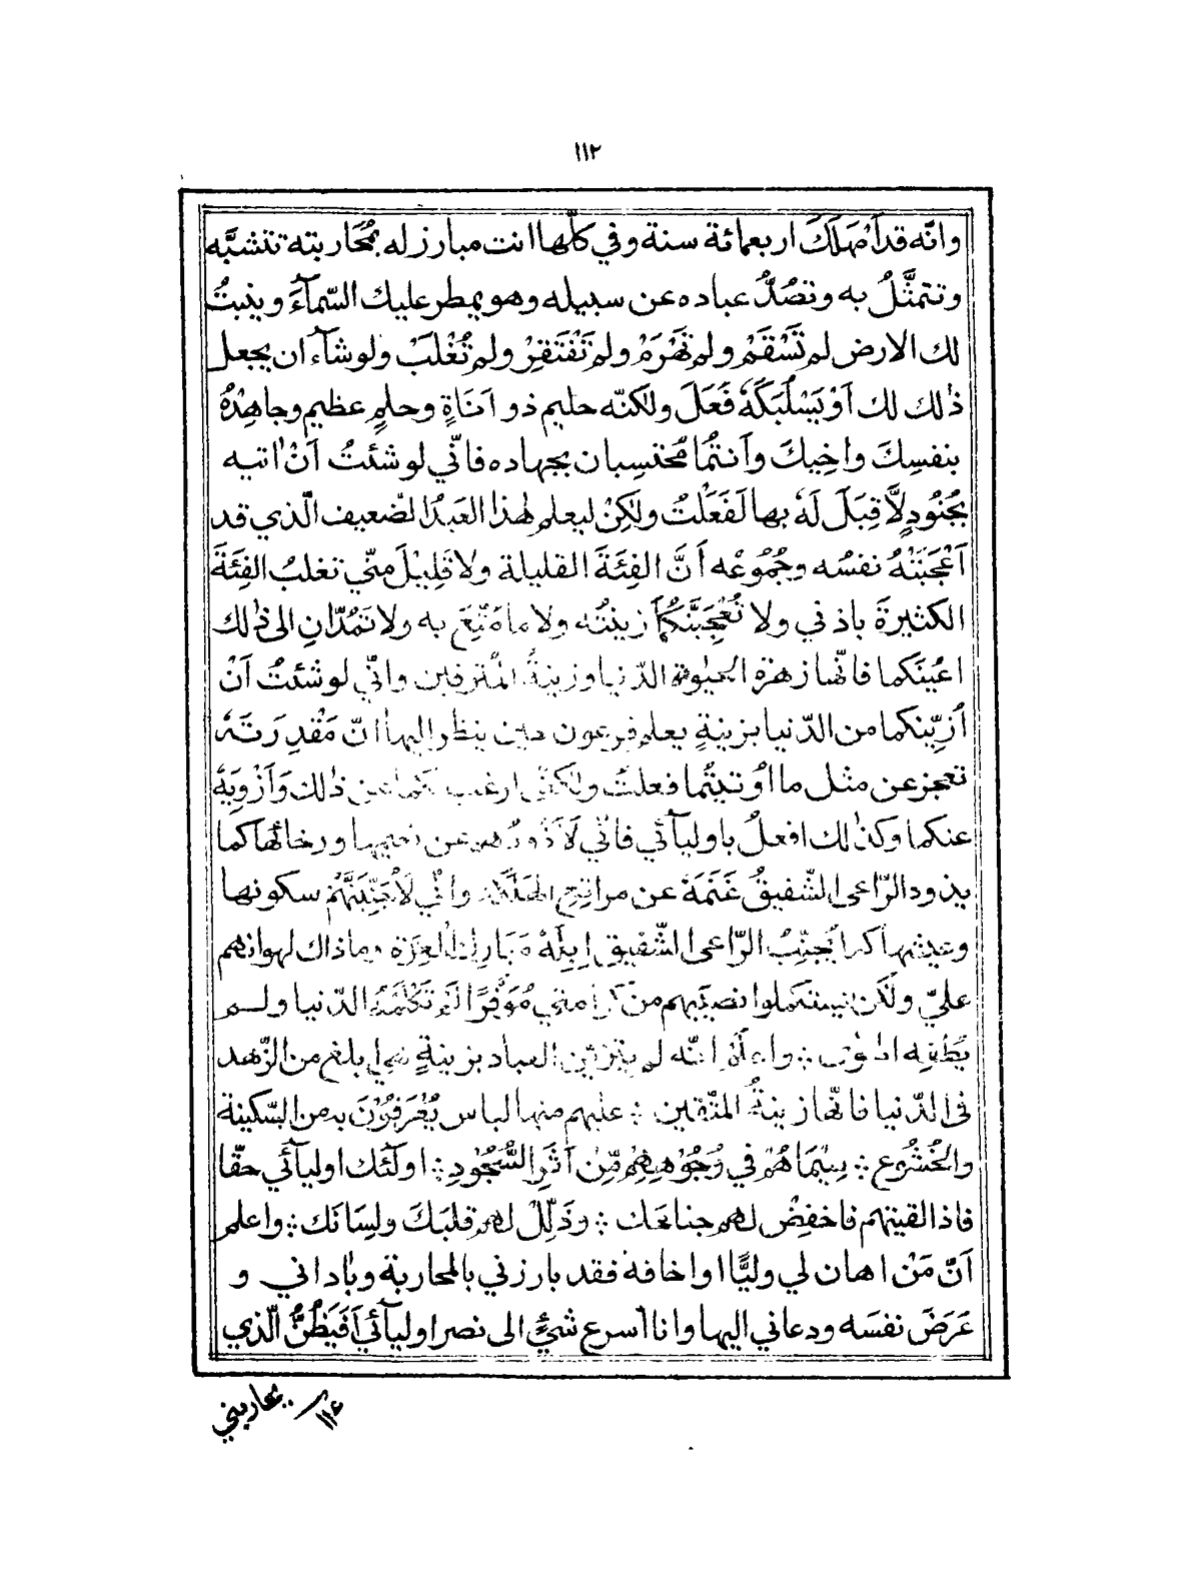 ١١٢
وانّه قد اَمْهَلَكَ اربعمائة سنة وفي كلّها انت مبارز له بمُحَاربته تتشبَّه
وتتمثَّلُ به وتصُدُّ عباده عن سبيله وهو يمطر عليك السّمآءَ وينبتُ
لك الارض لم تَسْقَمْ ولم تَهْرَمْ ولم تَفْتَقِرْ ولم تُغْلَبْ ولو شآء ان يجعل
ذٰلك لك اَوْ يَسْلُبَكَهٗ فَعَلَ ولٰكنّه حليم ذو اَنَاةٍ وحلمٍ عظيم وجاهِدْهُ
بنفسِكَ واخِيكَ وَاَنتُما مُحْتسِبان بجهاده فانّي لو شئتُ اَنْ اٰتيه
بجُنُودٍ لَّا قِبَلَ لَهٗ بها لَفَعَلْتُ ولٰكِنْ ليعلم هٰذا العَبدُ الضعيف الّذي قد
اَعْجَبَتْهُ نفسُه وجُمُوْعُه اَنَّ الفِئَةَ القليلة ولا قَلِيْلَ منّي تغلبُ الفِئَةَ
الكثيرةَ باذني ولا تُعْجِبَنَّكُمَا زينتُه ولا ما مُتِّعَ به ولا تمُدّانِ الى ذٰلك
اعيُنَكما فانّها زهرة الحيٰوة الدّنيا وزينةُ المُترفين وانّي لو شئتُ اَنْ
اُزيِّنكما من الدّنيا بزينةٍ يعلم فرعون حين ينظر اليها انّ مَقْدِرَتَهٗ
تعجز عن مثل ما اُوتيتُما فعلتُ ولٰكنّي ارغب بكما عن ذٰلك وَاَزْوِيَهٗ
عنكما وكذٰلك افعلُ باوليآئي فانّي لَاَذُودُهم عن نعيمها ورخائها كما
يذود الرّاعي الشّفيقُ غَنَمَهٗ عن مراتع الهَلَكَة وانّي لَاُجَنِّبَنَّهُمْ سكونها
وعيشها كما يُجنِّبُ الرّاعي الشّفيق اِبِلَهٗ مَبَارِكَ العِزّة وما ذاك لهوانهم
عليّ ولٰكن ليستكملوا نصيبهم من كرامتي مُوَفَّرًا لَمْ تَكْلَمْهُ الدّنيا ولم
يُطغِه الهوٰى ؞ واعلم انّه لم يتزيّن العباد بزينةٍ هي ابلغ من الزّهد
فى الدّنيا فانّها زينةُ المتّقين ؞ عليهم منها لباس يُعْرَفُوْنَ به من السّكينة
والخُشُوع ؞ سِيْمَاهُمْ في وُجُوْهِهِمْ مِّنْ اَثَرِ السُّجُودِ ؞ اولٰٓئك اوليآئي حقّا
فاذا لقيتهم فاخفِضْ لهم جناحَك ؞ وذَلِّلْ لهم قلبَكَ ولِسَانَك ؞ واعلم
اَنّ مَنْ اهان لي وليًّا او اخافه فقد بارزني بالمحاربة وباداني و
عَرَضَ نفسَه ودعاني اليها وانا اسرع شيْءٍ الى نصر اوليآئي اَفَيَظُنُّ الّذي
يحاربني
١١٤